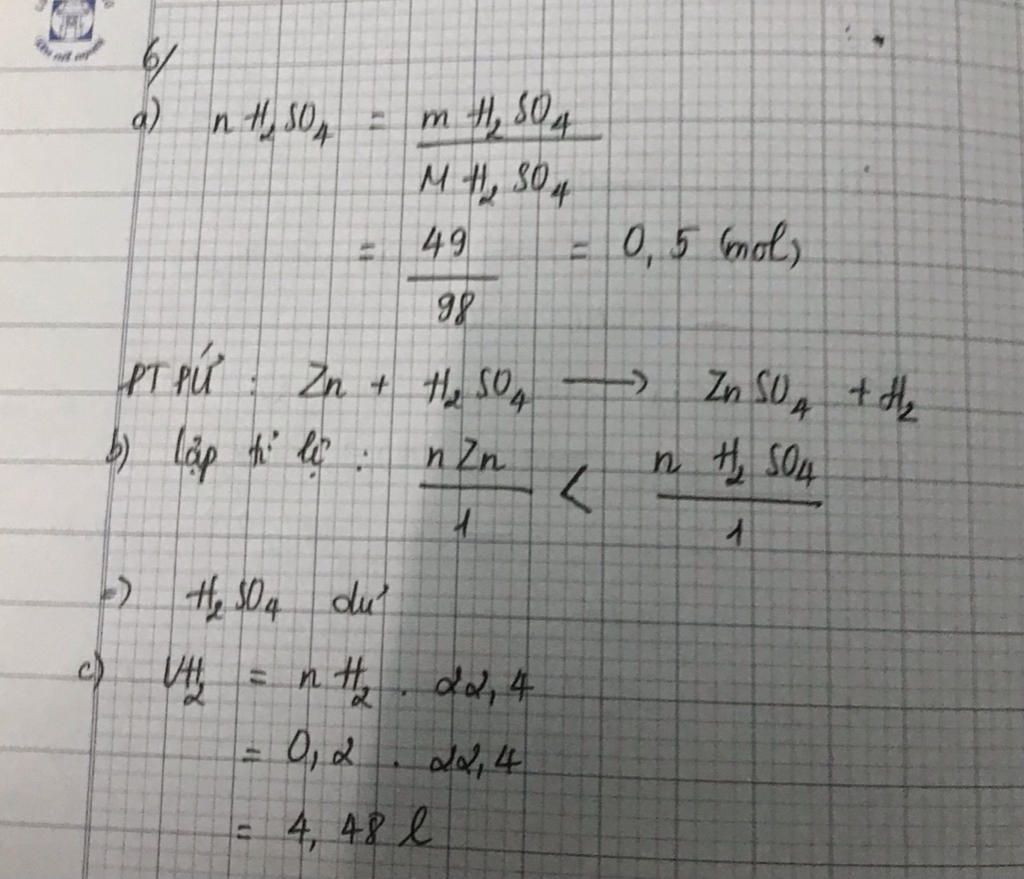 6/
a) n H₂SO₄ = m H₂SO₄ / M H₂SO₄
= 49 / 98 = 0,5 (mol)
PT PỨ : Zn + H₂SO₄ → ZnSO₄ + H₂
b) lập tỉ lệ : n Zn / 1 < n H₂SO₄ / 1
=) H₂SO₄ dư
c) VH₂ = n H₂ . 22,4
= 0,2 . 22,4
= 4,48 l